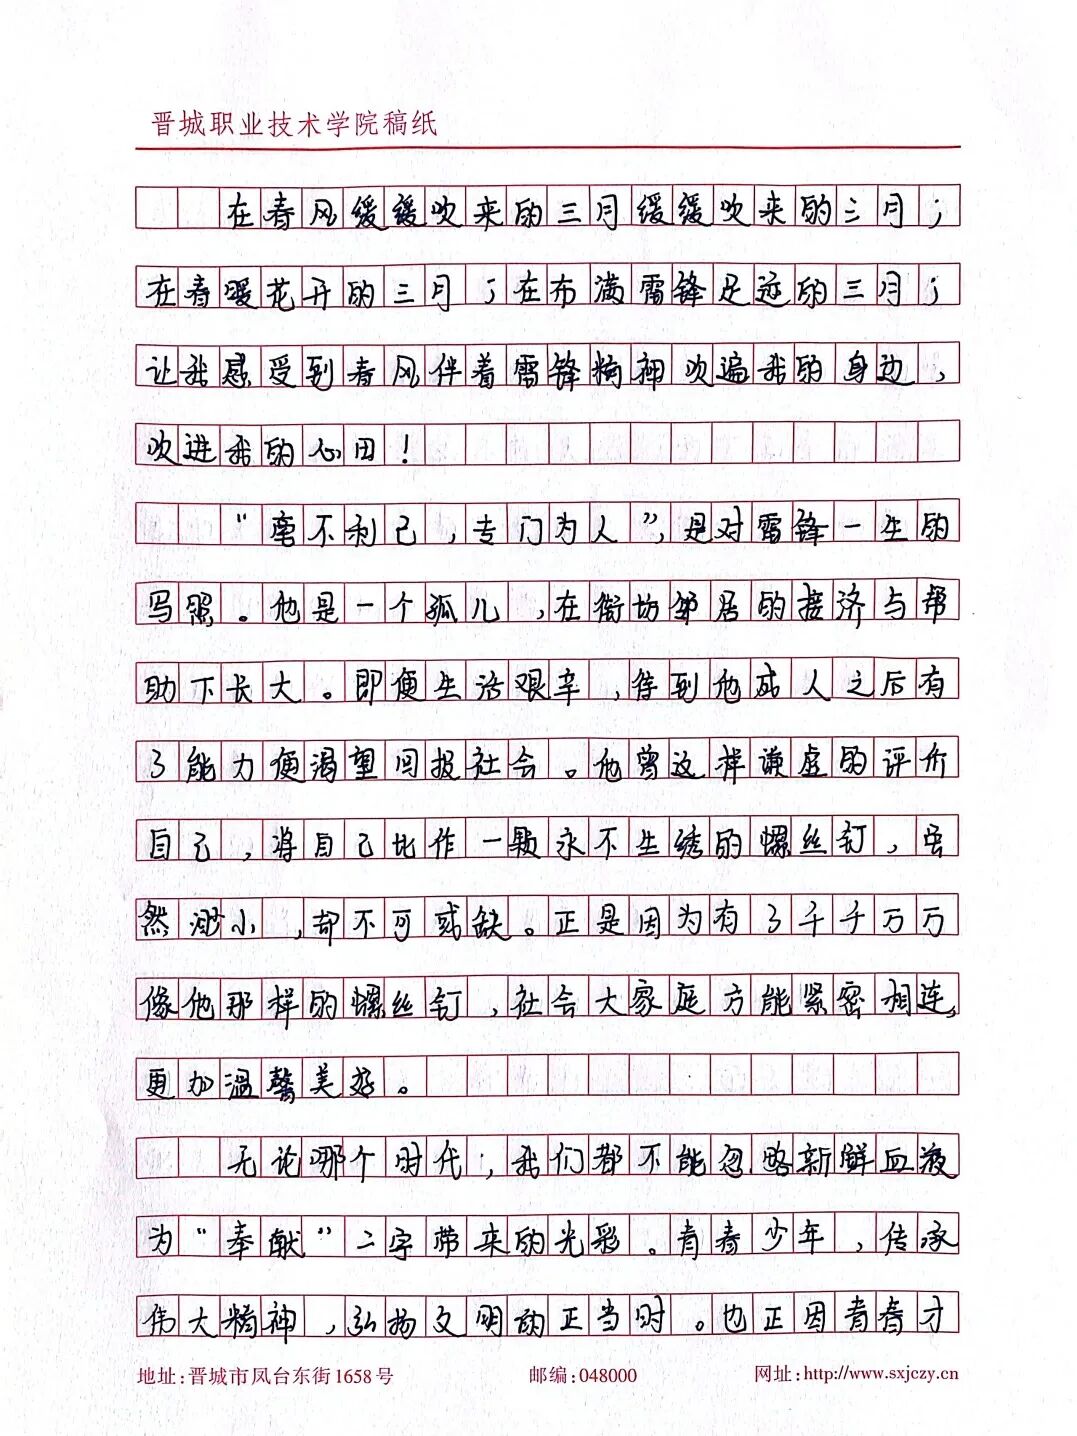 晋城职业技术学院稿纸
在春风缓缓吹来的三月缓缓吹来的三月；
在春暖花开的三月；在布满雷锋足迹的三月；
让我感受到春风伴着雷锋精神吹遍我的身边，
吹进我的心田！
“毫不利己，专门为人”，是对雷锋一生的
写照。他是一个孤儿，在街坊邹居的接济与帮
助下长大。即便生活艰辛，待到他成人之后有
了能力便渴望回报社会。他曾这样谦虚的评价
自己，将自己比作一颗永不生绣的螺丝钉，虽
然渺小，却不可或缺。正是因为有了千千万万
像他那样的螺丝钉，社会大家庭方能紧密相连，
更加温馨美好。
无论哪个时代，我们都不能忽略新鲜血液
为“奉献”二字带来的光彩。青春少年，传承
伟大精神，弘扬文明的正当时。也正因青春才
地址：晋城市凤台东街1658号 邮编：048000 网址：http://www.sxjczy.cn